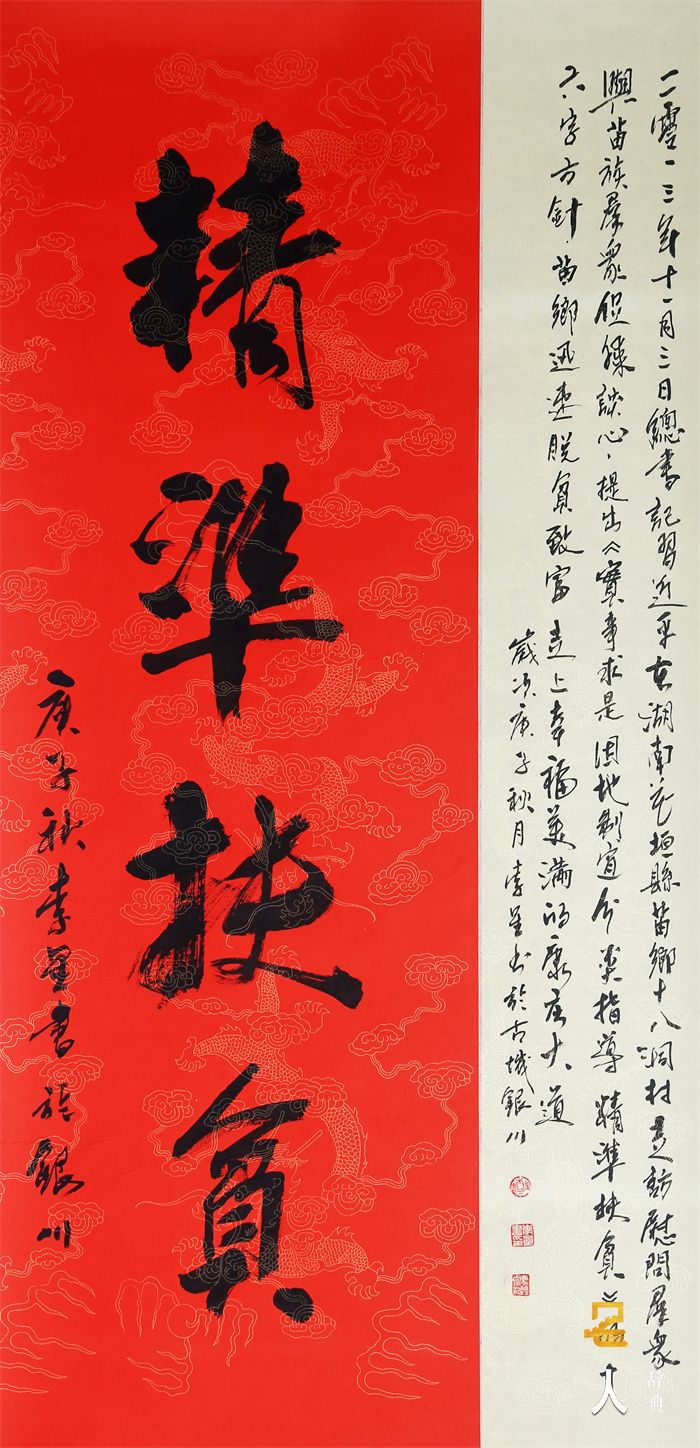 二零一三年十一月三日總書記習近平在湖南花垣縣苗鄉十八洞村走訪慰問羣衆
與苗族羣衆促膝談心，提出《實事求是因地制宜分类指導精準扶貧》的十
六字方針，苗鄉迅速脱貧致富走上幸福美滿的康庄大道
歲次庚子秋月李星书於古城銀川
精準扶貧
庚子秋李星書於銀川
名人
辞典